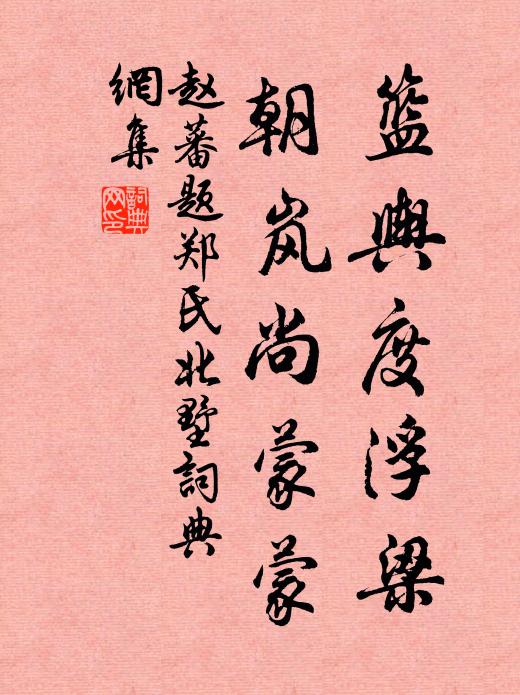 篮輿度浮梁
朝岚尚蒙蒙
赵蕃题郑氏北墅詞典
網集
詞典
网印